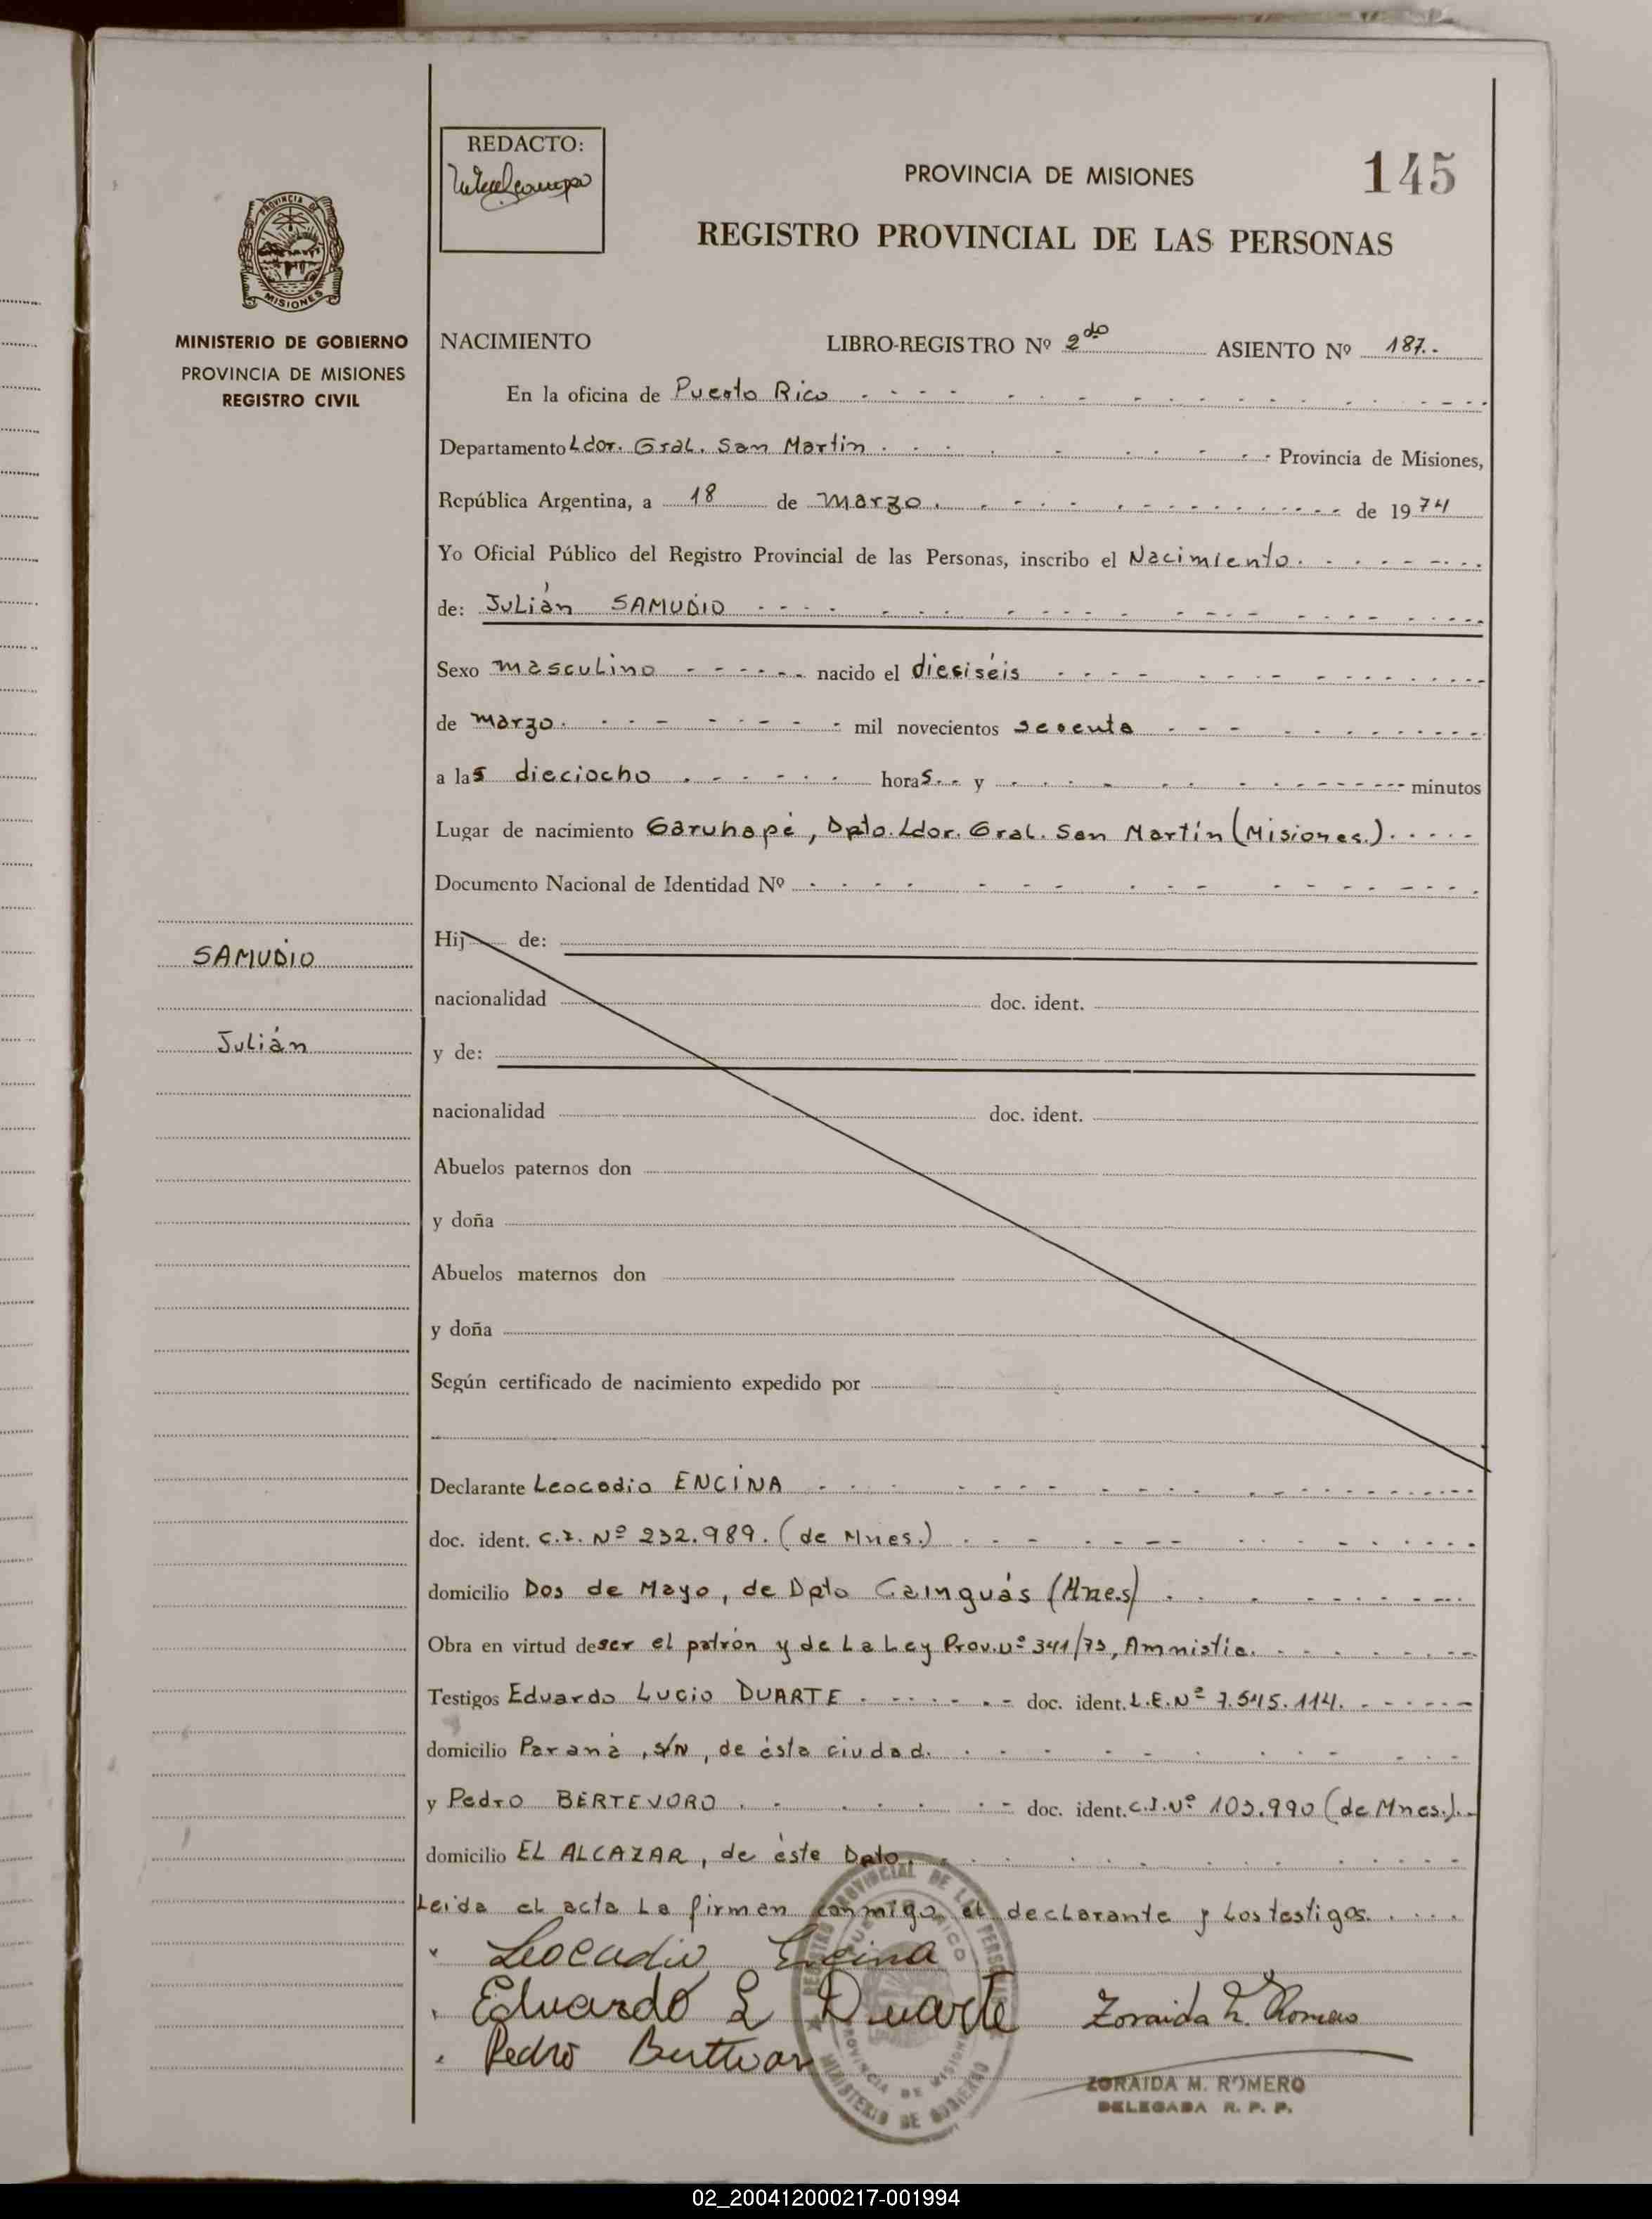 REDACTO:
PROVINCIA DE MISIONES
145
REGISTRO PROVINCIAL DE LAS PERSONAS
PROVINCIA DE
MISIONES
MINISTERIO DE GOBIERNO
PROVINCIA DE MISIONES
REGISTRO CIVIL
NACIMIENTO LIBRO-REGISTRO Nº 2do ASIENTO Nº 187.-
En la oficina de Puerto Rico
Departamento Ldor. Gral. San Martin Provincia de Misiones,
República Argentina, a 18 de Marzo. de 1974
Yo Oficial Público del Registro Provincial de las Personas, inscribo el Nacimiento.
de: Julián SAMUDIO
Sexo masculino nacido el dieciséis
de Marzo. mil novecientos
a las dieciocho horas. y minutos
Lugar de nacimiento Garuhapé, Dpto. Ldor. Gral. San Martín (Misiones.)
Documento Nacional de Identidad Nº
SAMUDIO
Julián
Hij de:
nacionalidad doc. ident.
y de:
nacionalidad doc. ident.
Abuelos paternos don
y doña
Abuelos maternos don
y doña
Según certificado de nacimiento expedido por
Declarante Leocadio ENCINA
doc. ident. C.I. Nº 232.989. (de Mnes.)
domicilio Dos de Mayo, de Dpto Cainguás (Mnes)
Obra en virtud de ser el patrón y de La Ley Prov. nº 341/73, Amnistia.
Testigos Eduardo Lucio DUARTE. doc. ident. L.E. Nº 7.545.114.
domicilio Paraná, s/N, de ésta ciudad.
y Pedro BERTEVORO. doc. ident. C.I. Nº 103.990 (de Mnes.).
domicilio EL ALCAZAR, de éste Dpto.
Leida el acta La firman conmigo, el declarante y los testigos.
Leocadio Encina
Eduardo L Duarte
Zoraida M. Romero
Pedro
ZORAIDA M. ROMERO
DELEGADA R. P. P.
REGISTRO PROVINCIAL DE LAS PERSONAS
PROVINCIA DE MISIONES
MINISTERIO DE GOBIERNO
02_200412000217-001994